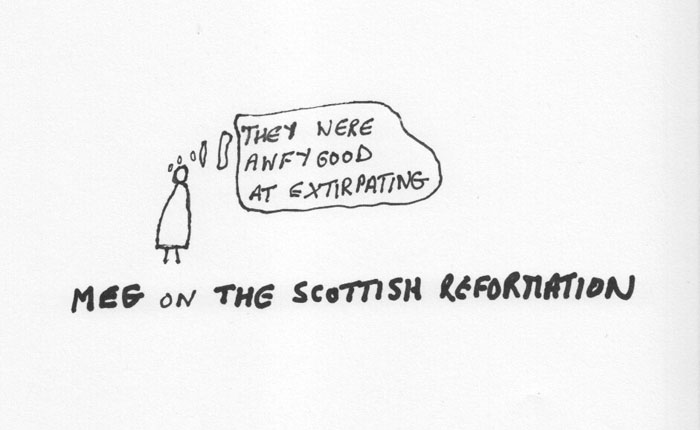 THEY WERE
AWFY GOOD
AT EXTIRPATING
MEG ON THE SCOTTISH REFORMATION